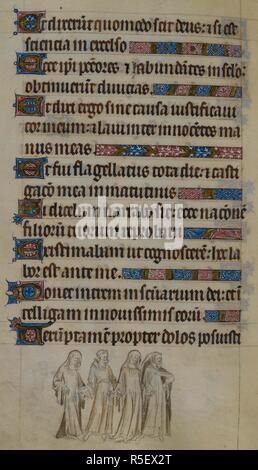 Et dixerunt quomodo scit deus: & si est
sciencia in excelso
Ecce ipi peccores & habundantes in sclo:
obtinuerunt divicias.
Et dixi ergo sine causa iustificavi
cor meum: & lavi inter innocentes ma
nus meas.
Et fui flagellatus tota die: & casti
gacio mea in matutinis
Si dicebam narrabo sic: ecce nacionem
filiorum tuorum reprobavi
Existimabam ut cognoscerem: hoc la
bor est ante me.
Donec intrem in scuarium dei: & in
telligam in novissimis eorum
Verumptamen propter dolos posuisti
alamy
Image ID: R5EX2T
www.alamy.com